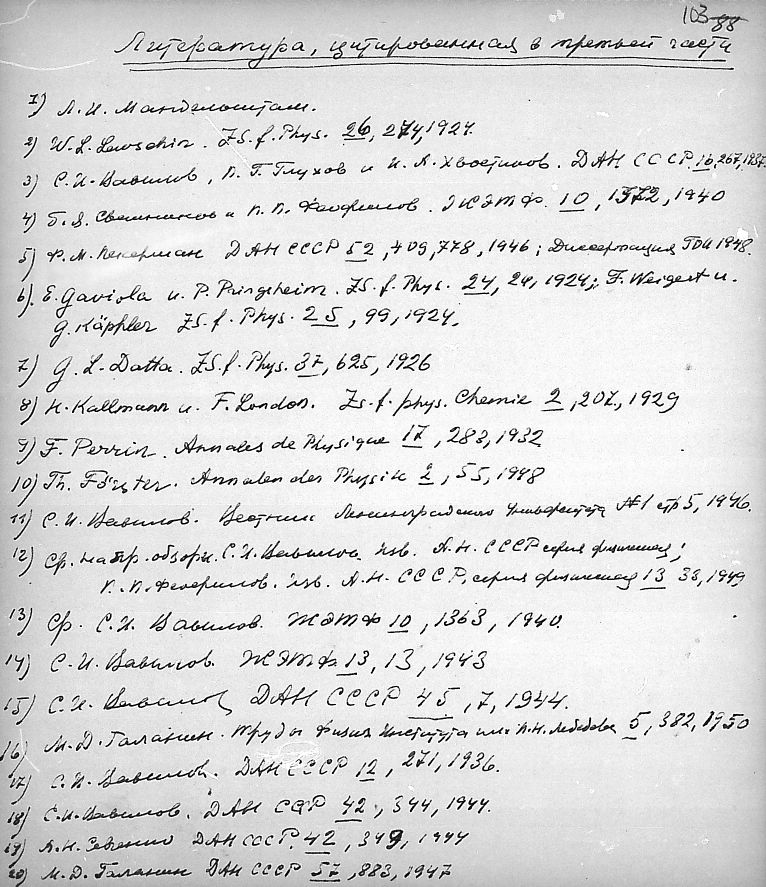 103 88
Литература, цитированная в третьей части
1) Л.И. Мандельштам.
2) W. L. Lewschin. Zs. f. Phys. 26, 274, 1924.
3) С.И. Вавилов, П. Г. Глухов и И. А. Хвостиков. ДАН СССР. 16, 267, 1937.
4) Б. Я. Свешников и П. П. Феофилов. ЖЭТФ. 10, 1372, 1940
5) Ф. М. Пекерман ДАН СССР 52, 409, 778, 1946; Диссертация ГОИ 1948.
6). E. Gaviola u. P. Pringsheim. Zs. f. Phys. 24, 24, 1924; F. Weigert u.
G. Käppler Zs. f. Phys. 25, 99, 1924.
7) G. L. Datta. Zs. f. Phys. 37, 625, 1926
8) H. Kallmann u. F. London. Zs. f. phys. Chemie 2, 207, 1929
9) F. Perrin. Annales de Physique 17, 283, 1932
10) Th. Förster. Annalen der Physik 2, 55, 1948
11) С. И. Вавилов. Вестник Ленинградского Университета №1 стр 5, 1946.
12) Ср. напр. обзоры. С. И. Вавилов. Изв. А.Н. СССР серия физическая;
П. П. Феофилов. Изв. А.Н. СССР, серия физическая 13 38, 1949
13) Ср. С. И. Вавилов. ЖЭТФ 10, 1363, 1940.
14) С. И. Вавилов. ЖЭТФ 13, 13, 1943
15) С. И. Вавилов, ДАН СССР 45, 7, 1944.
16) М. Д. Галанин. Труды Физич Института им. П.Н. Лебедева 5, 382, 1950
17) С. И. Вавилов. ДАН СССР 12, 271, 1936.
18) С. И. Вавилов. ДАН СССР 42, 344, 1944.
19) А. Н. Севченко ДАН СССР. 42, 349, 1944
20) М. Д. Галанин ДАН СССР 57, 883, 1947